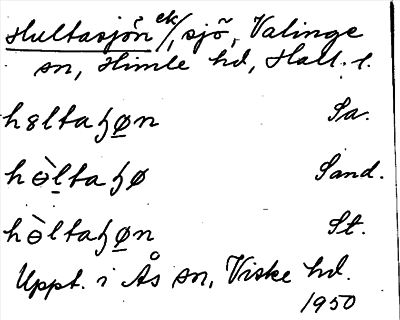 Hultasjön ek/, sjö, Valinge
sn, Himle hd, Hall. l.
hɵltaɧøn Sa.
hɵ̀ltaɧø Sand.
hɵ̀ltaɧøn St.
Uppt. i Ås sn, Viske hd.
1950